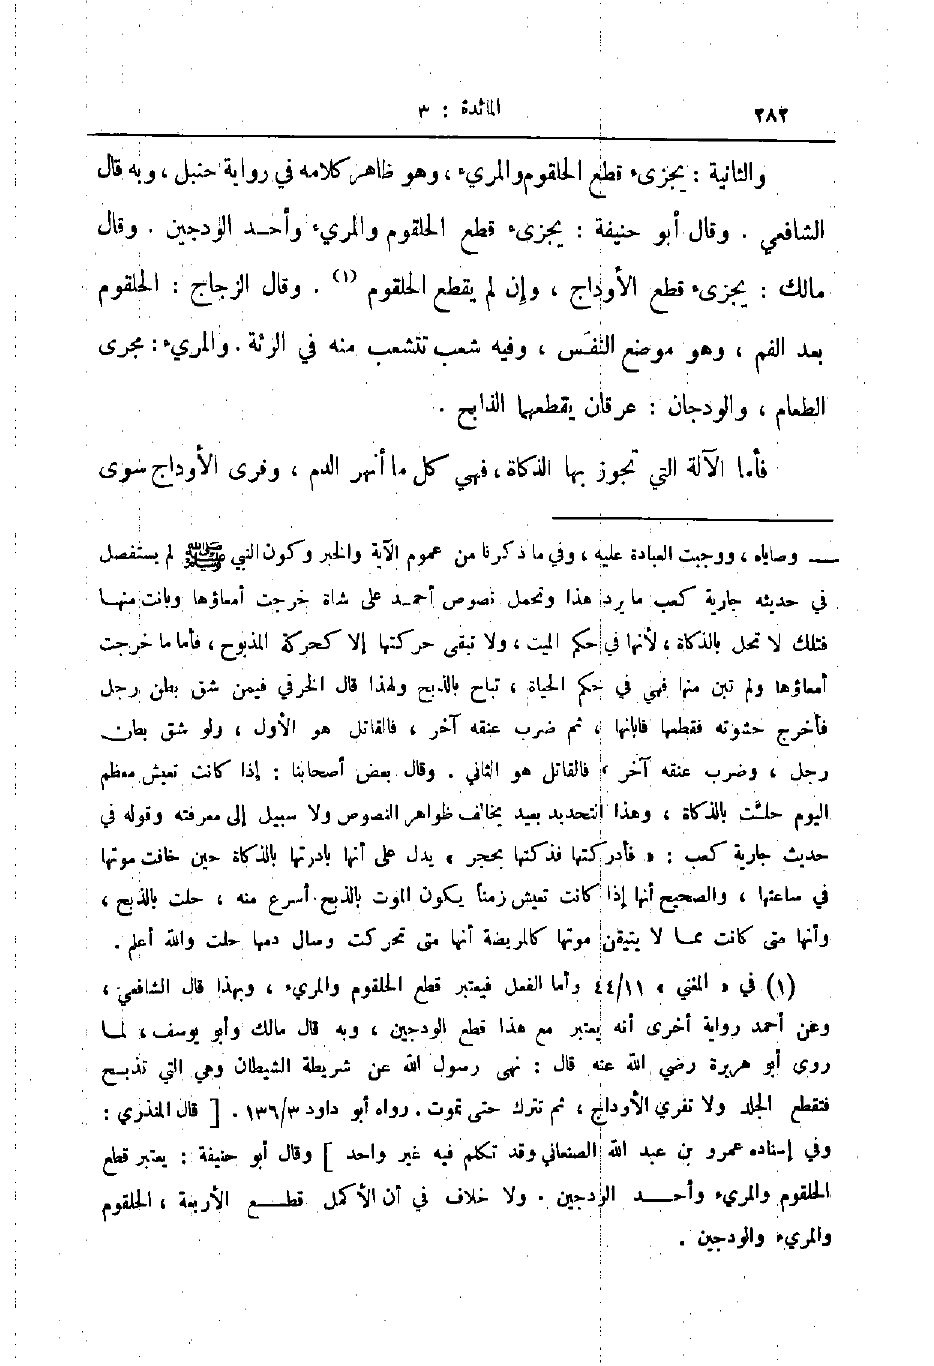 ٢٨٢
المائدة : ٣
والثانية : يجزىء قطع الحلقوم والمريء ، وهو ظاهر كلامه في رواية حنبل ، وبه قال
الشافعي . وقال أبو حنيفة : يجزىء قطع الحلقوم والمريء وأحـد الودجين . وقال
مالك : يجزىء قطع الأوداج ، وإن لم يقطع الحلقوم (١) . وقال الزجاج : الحلقوم
بعد الفم ، وهو موضع النفَس ، وفيه شعب تتشعب منه في الرئة . والمريء : مجرى
الطعام ، والودجان : عرقان يقطعهما الذابح .
فأما الآلة التي تجوز بها الذكاة ، فهي كل ما أنهر الدم ، وفرى الأوداج سوى
ــ وصاياه ، ووجبت العبادة عليه ، وفي ما ذكرنا من عموم الآية والخبر وكون النبي ﷺ لم يستفصل
في حديثه جارية كعب ما يرد هذا وتحمل نصوص أحمـد على شاة خرجت أمعاؤها وبانت منهـا
فتلك لا تحل بالذكاة ، لأنها في حكم الميت ، ولا تبقى حركتها إلا كحركة المذبوح ، فأما ما خرجت
أمعاؤها ولم تبن منها فهي في حكم الحياة ، تباح بالذبح ولهذا قال الخرقي فيمن شق بطن رجل
فأخرج حشوته فقطعها فابانها ، ثم ضرب عنقه آخر ، فالقاتل هو الأول ، ولو شق بطن
رجل ، وضرب عنقه آخر ، فالقاتل هو الثاني . وقال بعض أصحابنا : إذا كانت تعيش معظم
اليوم حلـَّت بالذكاة ، وهذا التحديد بعيد يخالف ظواهر النصوص ولا سبيل إلى معرفته وقوله في
حديث جارية كعب : « فأدركتها فذكتها بحجر » يدل على أنها بادرتها بالذكاة حين خافت موتها
في ساعتها ، والصحيح أنها إذا كانت تعيش زمناً يكون الموت بالذبح أسرع منه ، حلت بالذبح ،
وأنها متى كانت ممـا لا يتيقن موتها كالمريضة أنها متى تحركت وسال دمها حلت والله أعلم .
(١) في « المغني » ٤٤/١١ وأما الفعل فيعتبر قطع الحلقوم والمريء ، وبهذا قال الشافعي ،
وعن أحمد رواية أخرى أنه يعتبر مع هذا قطع الودجين ، وبه قال مالك وأبو يوسف ، لمـا
روى أبو هريرة رضي الله عنه قال : نهى رسول الله عن شريطة الشيطان وهي التي تذبـح
فتقطع الجلد ولا تفري الأوداج ، ثم تترك حتى تموت . رواه أبو داود ١٣٦/٣ . [ قال المنذري :
وفي إسناده عمرو بن عبد الله الصنعاني وقد تكلم فيه غير واحد ] وقال أبو حنيفة : يعتبر قطع
الحلقوم والمريء وأحــد الودجين . ولا خلاف في أن الأكمل قطــع الأربعة ، الحلقوم
والمريء والودجين .